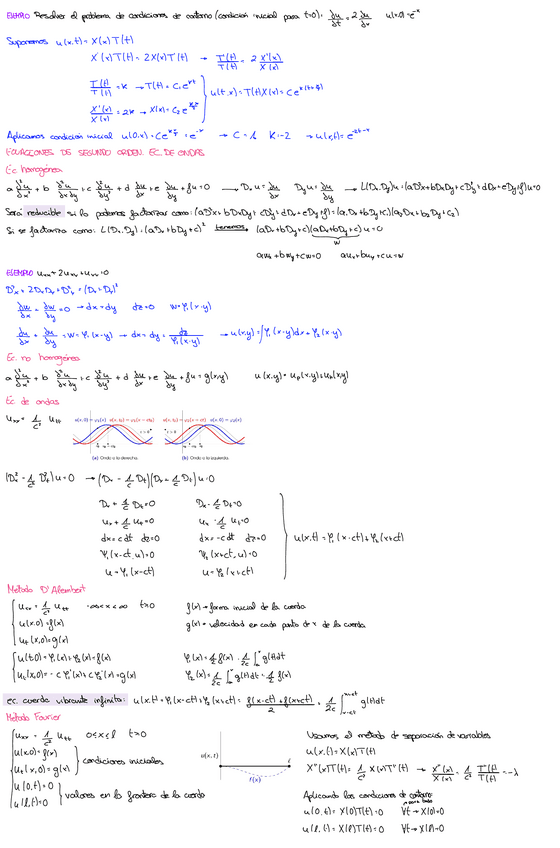 EJEMPLO Resolver el problema de condiciones de contorno (condición inicial para t=0): ∂u/∂t = 2 ∂u/∂x u(x,0)=e^-x
Suponemos u(x,t) = X(x)T(t)
X'(x)T(t) = 2X(x)T(t) → T'(t)/T(t) = 2 X'(x)/X(x)
T'(t)/T(t) = k → T(t) = C₁e^kt
u(t,x) = T(t)X(x) = C e^k(t+x/2)
X'(x)/X(x) = 2k → X(x) = C₂e^
Aplicamos condición inicial u(0,x) = Ce^k x/2 = e^-x → C = 1 K = -2 → u(x,t) = e^-2t-x
ECUACIONES DE SEGUNDO ORDEN. EC. DE ONDAS
Ec homogénea
a ∂²u/∂x² + b ∂²u/∂x∂y + c ∂²u/∂y² + d ∂u/∂x + e ∂u/∂y + fu = 0 → Dₓu = ∂u/∂x Dyu = ∂u/∂y → L(Dx,Dy)u = (aD²x+bDxDy+cD²y+dDx+eDy+f)u=0
Será reducible si lo podemos factorizar como: (aD²x+bDxDy+cD²y+dDx+eDy+f) = (a₁Dx+b₁Dy+c₁)(a₂Dx+b₂Dy+c₂)
Si se factoriza como: L(Dx,Dy) = (aDx+bDy+c)² tenemos (aDx+bDy+c)(aDx+bDy+c)u = 0
w
awx + bwy + cw = 0 aux + buy + cu = w
EJEMPLO uxx + 2uxy + uyy = 0
D²x + 2DxDy + D²y = (Dx+Dy)²
∂w/∂x + ∂w/∂y = 0 → dx = dy dz = 0 w = φ₁(x-y)
∂u/∂x + ∂u/∂y = w = φ₁(x-y) → dx = dy = dz/φ₁(x-y) → u(x,y) = ∫φ₁(x-y)dx + φ₂(x-y)
Ec. no homogénea
a ∂²u/∂x² + b ∂²u/∂x∂y + c ∂²u/∂y² + d ∂u/∂x + e ∂u/∂y + fu = g(x,y) u(x,y) = up(x,y)+uh(x,y)
Ec. de ondas
uxx = 1/c² utt
(a) Onda a la derecha. (b) Onda a la izquierda.
(D²x - 1/c² D²t)u = 0 → (Dx - 1/c Dt)(Dx + 1/c Dt)u = 0
Dx + 1/c Dt = 0 Dx - 1/c Dt = 0
ux + 1/c ut = 0 ux - 1/c ut = 0
dx = cdt dz = 0 dx = -cdt dz = 0 u(x,t) = φ₁(x-ct)+φ₂(x+ct)
ψ₁(x-ct,u) = 0 ψ₂(x+ct,u) = 0
u = φ₁(x-ct) u = φ₂(x+ct)
Método D'Alembert
uxx = 1/c² utt -∞<x<∞ t>0 f(x) → forma inicial de la cuerda
u(x,0) = f(x) g(x) = velocidad en cada punto de x de la cuerda
ut(x,0) = g(x)
u(t,0) = φ₁(x)+φ₂(x) = f(x) φ₁(x) = 1/2 f(x) - 1/2c ∫ g(t)dt
ut(x,0) = -cφ₁'(x)+cφ₂'(x) = g(x) φ₂(x) = 1/2c ∫ g(t)dt + 1/2 f(x)
ec. cuerda vibrante infinita: u(x,t) = φ₁(x-ct)+φ₂(x+ct) = f(x-ct)+f(x+ct)/2 + 1/2c ∫x-ct^x+ct g(t)dt
Método Fourier
uxx = 1/c² utt 0<x<l t>0
u(x,0) = f(x)
ut(x,0) = g(x) condiciones iniciales
u(0,t) = 0
u(l,t) = 0 valores en la frontera de la cuerda
u(x,t)
l
f(x)
Usamos el método de separación de variables
u(x,t) = X(x)T(t)
X''(x)T(t) = 1/c² X(x)T''(t) → X''(x)/X(x) = 1/c² T''(t)/T(t) = -λ
Aplicando las condiciones de contorno:
u(0,t) = X(0)T(t) = 0 ∀t → X(0)=0
u(l,t) = X(l)T(t) = 0 ∀t → X(l)=0